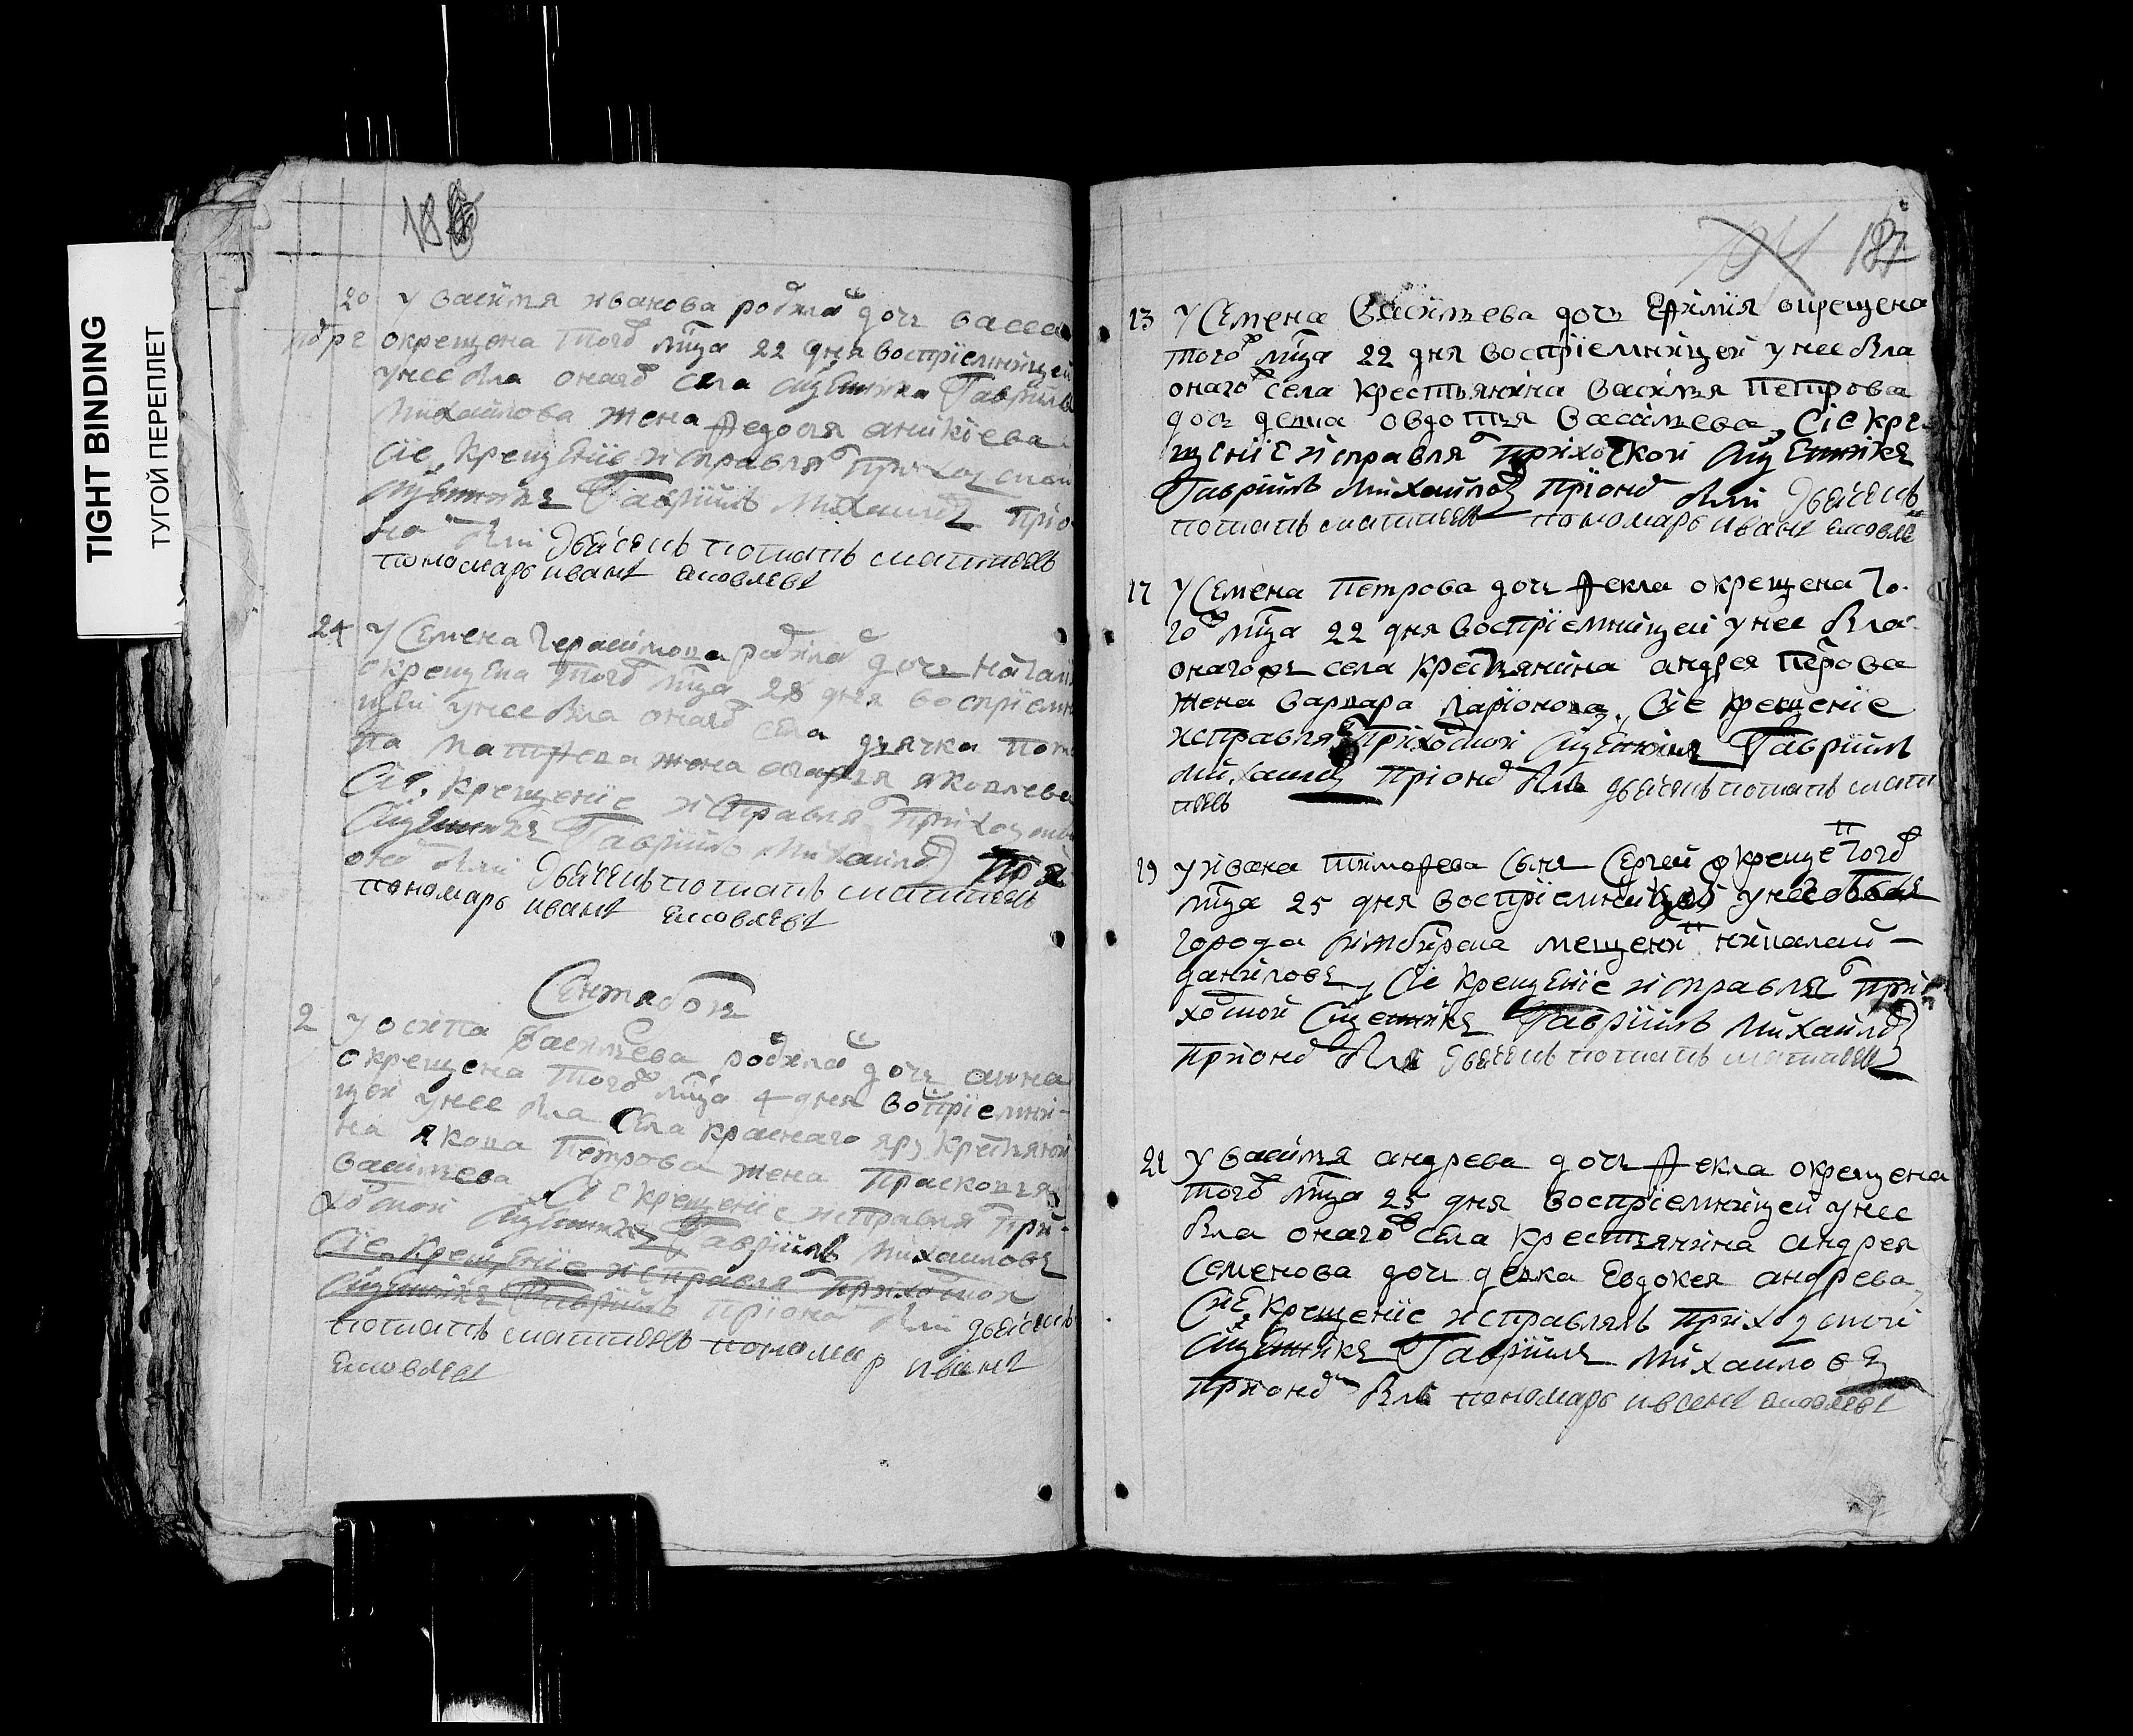 TIGHT BINDING
ТУГОЙ ПЕРЕПЛЕТ
18
20 У василья иванова родила дочь васса
окрещена того мца 22 дня воспріемницей
у нее была онаго села сщенника Гаврила
Михаилова жена Федосья аникіева
Сіе крещеніе исправлялъ приходской
сщенникъ Гавріилъ Михаиловъ при о
номъ были дьячекъ потапъ матвѣевъ
пономарь иванъ яковлевъ
24 У Семена Герасимова родила дочь Наталія
окрещена того мца 28 дня воспріемни
цей у нее была онаго села дьячка пота
па матфева жена яковлева
Сіе крещеніе исправлялъ приходской
сщенникъ Гавріилъ Михаиловъ при
ономъ были дьячекъ потапъ матвѣевъ
пономарь иванъ яковлевъ
Сентябрь
2 У осипа васильева родила дочь анна
окрещена того мца 4 дня воспріемни-
цей у нее была села краснаго яру крестьяни
на якова Петрова жена Прасковья
васильева Сіе крещеніе исправлялъ при-
ходской сщенникъ Гавріилъ Михаиловъ
Сіе крещеніе исправлялъ приходской
сщенникъ Гавріилъ при ономъ были дьячекъ
потапъ матвѣевъ пономар иванъ
яковлевъ
187
13 У Семена Васильева дочь Ефимія окрещена
того мца 22 дня воспріемницей у нее была
онаго села крестьянина василья Петрова
дочь девка овдотья васильева, Сіе кре
щеніе исправлялъ приходской сщенникъ
Гавріилъ Михаиловъ при ономъ были дьячекъ
потапъ матвѣевъ пономарь иванъ яковлев
17 У Семена Петрова дочь Фекла окрещена то
го мца 22 дня воспріемницей у нее была
онагожъ села крестьянина андрея Петрова
жена варвара ларіонова, Сіе крещеніе
исправлялъ приходской сщенникъ Гавріилъ
Михаиловъ при ономъ былъ дьячекъ потапъ мат
вѣевъ
19 У ивана тимофева сынъ Сергей окрещенъ того
мца 25 дня воспріемникъ у нее былъ
города симбирска мещенинъ николай
даниловъ, Сіе крещеніе исправлялъ при
ходской сщенникъ Гавріилъ Михаиловъ
при ономъ былъ дьячекъ потапъ матвѣевъ
21 У василья андрева дочь Фекла окрещена
того мца 25 дня воспріемницей у нее
была онаго села крестьянина андрея
семенова дочь девка Евдокея андрева,
Сіе крещеніе исправлялъ приходской
сщенникъ Гавріилъ Михаиловъ
при ономъ былъ пономарь иванъ яковлевъ